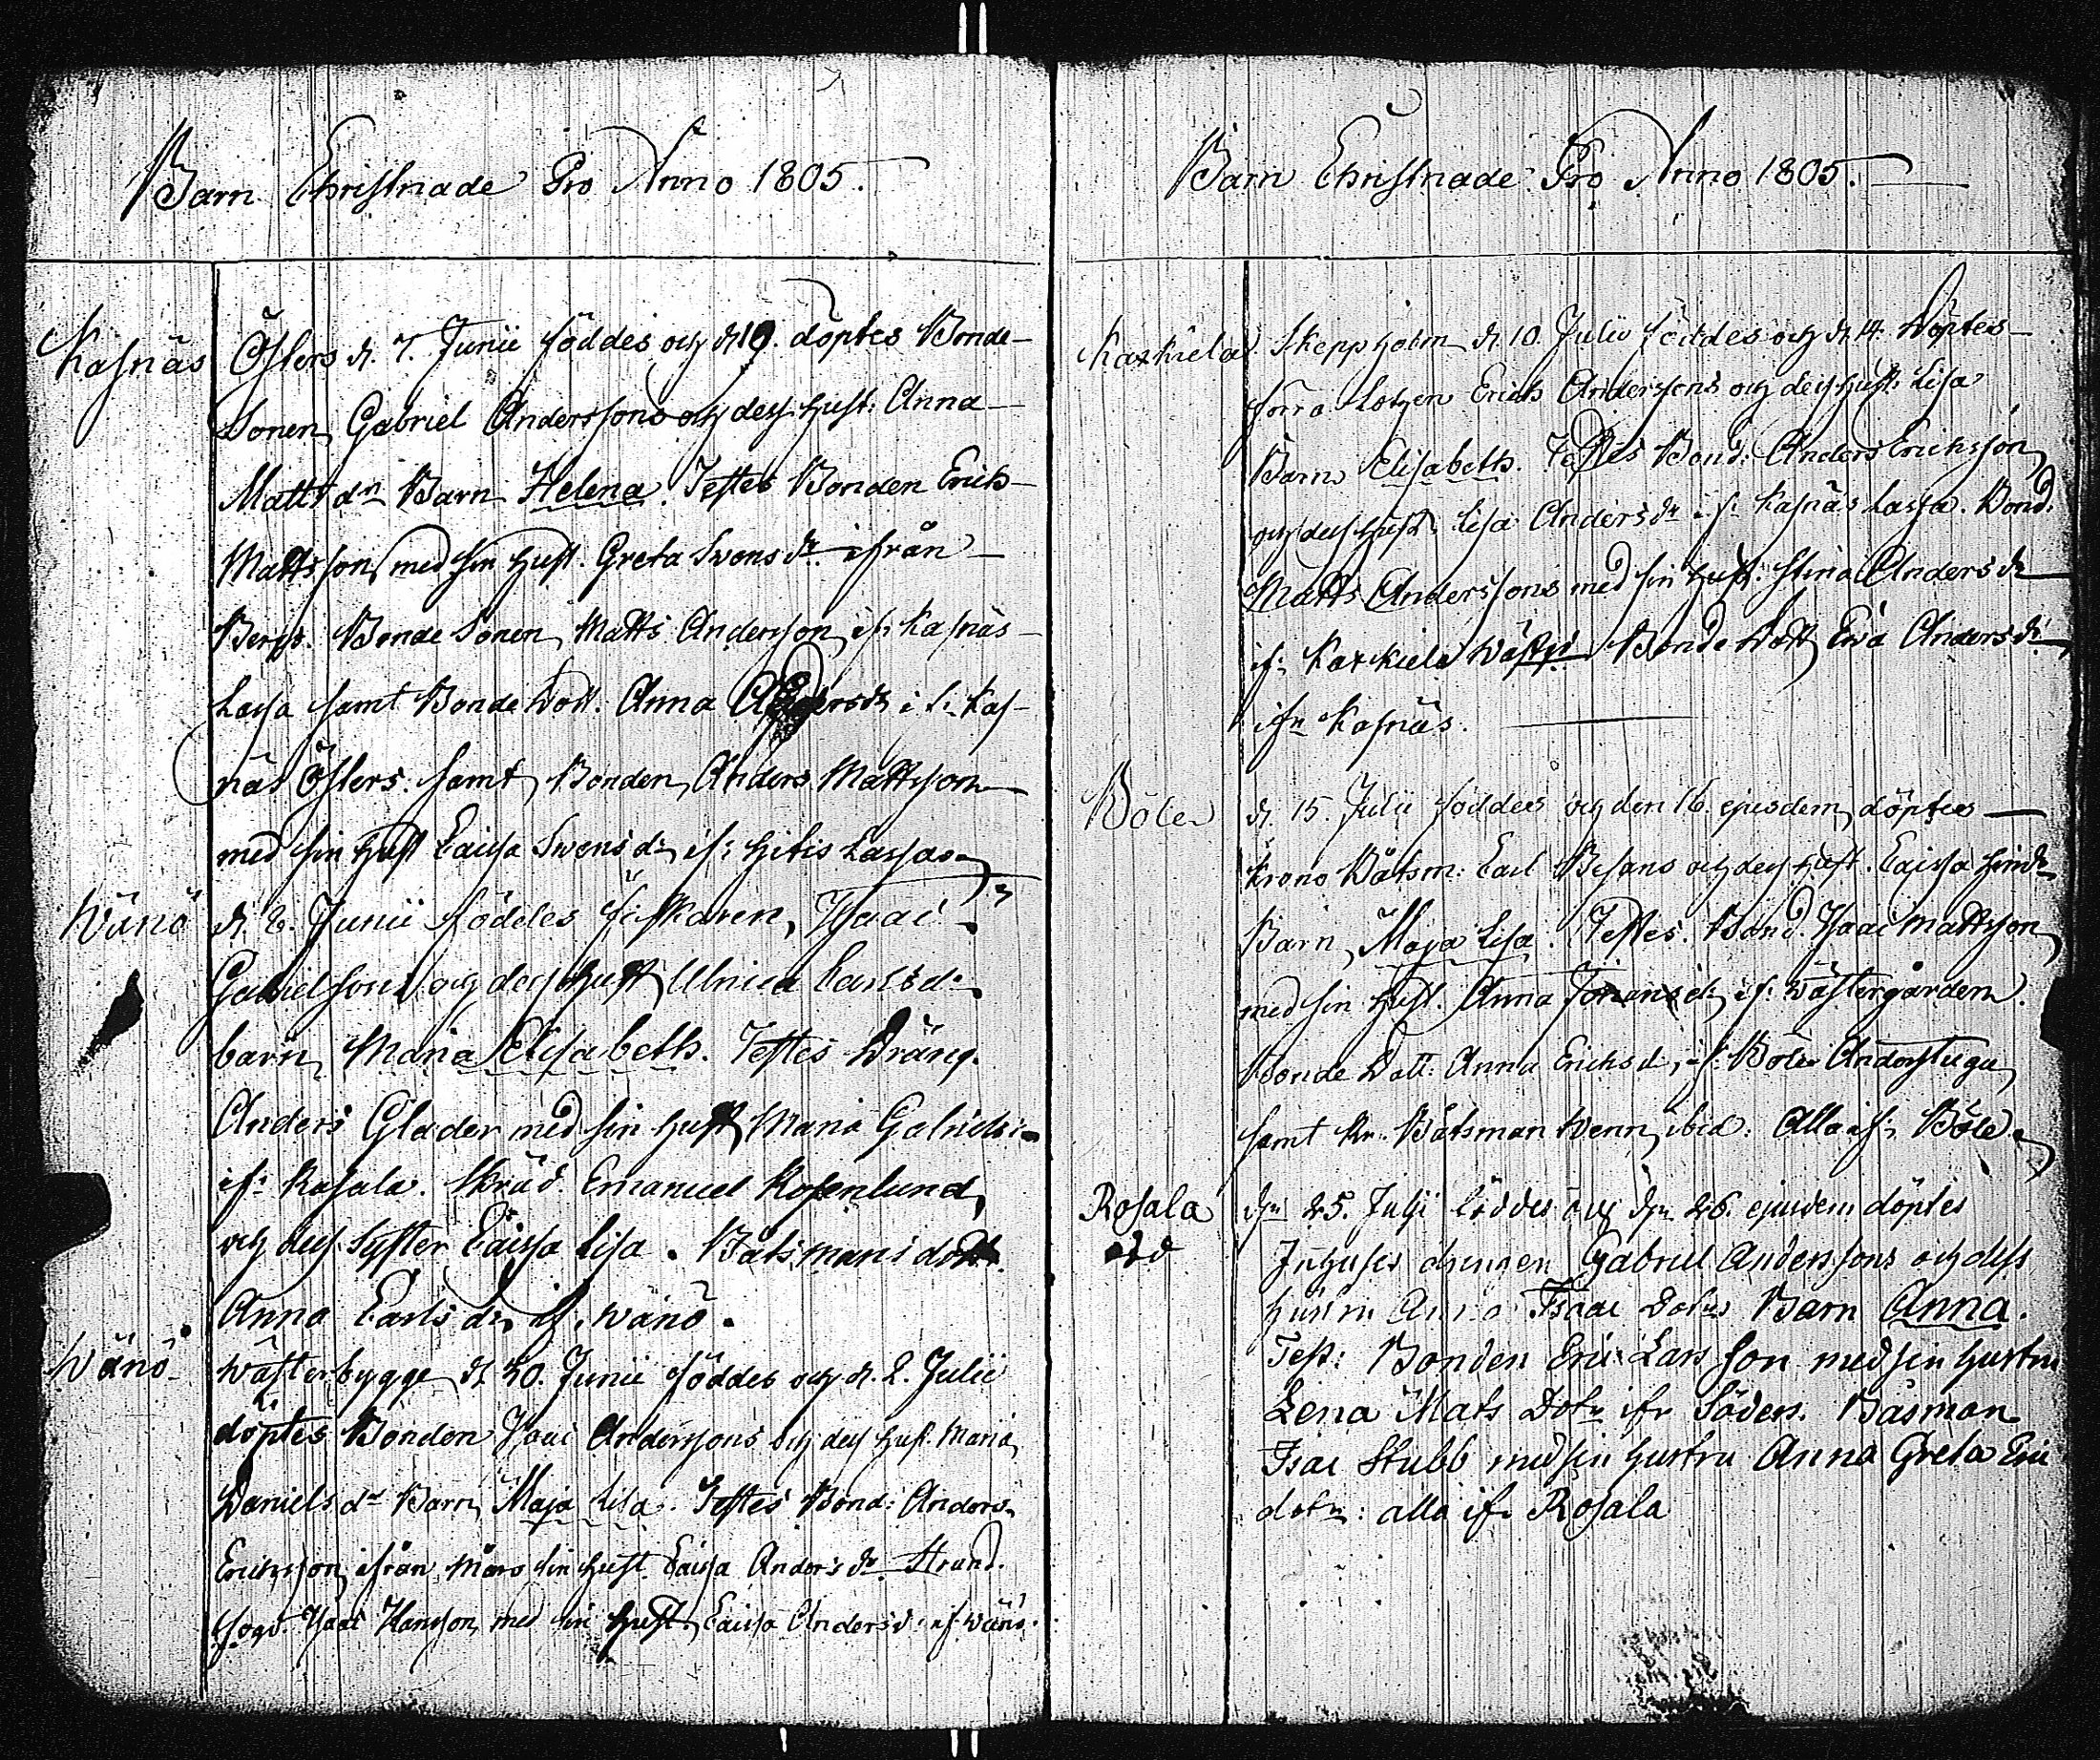 Barn Christnade Pro Anno 1805.
Kasnäs Östers d. 7. Junii föddes och d 10. döptes Bonde-
Sonen Gabriel Anderssons och dess hust: Anna
Matts dr Barn Helena. Testes Bonden Erich
Mattsson med sin hust. Greta Svens dr ifrån
Bergö. Bonde Sonen Matts Andersson if: Kasnäs
Lassa samt Bonde Dott. Anna Andersdr if: Kas-
näs Östers. samt Bonden Anders Mattsson
med sin hust Caisa Svens dr if: Hitis Lassas
Wänö d. 8. Junii föddes fiskaren, Isaac
Gabrielssons och dess hust Ulrica Carls dr
barn Maria Elisabeth. Testes Dräng.
Anders Glader med sin hust Maria Gabriels
if: Rosala. Skräd. Emanuel Rosenlund
och dess Syster Caisa Lisa. Båtsmans dott
Anna Carls dr if. Wänö.
Wänö Wästerbygge d. 30. Junii föddes och d. 2. Julii
döptes Bonden Isaac Anderssons och dess hust. Maria
Daniels dr Barn Maja Lisa. Testes Bond: Anders
Erichsson ifrån sin hust. Caisa Anders dr Strand.
fogd. Isaac Hansson med sin hust Caisa Anders d. if. Wänö.
Barn Christnade Pro Anno 1805.
Karkiela Skeppholm d. 10. Julii föddes och d. 14. döptes
förra Lotzen Erich Anderssons och dess hust: Lisa
Barn Elisabeth. Testes Bond: Anders Erichsson
och dess hust. Lisa Anders dr if: Kasnäs Lassa. Bond:
Matts Anderssons med sin hust: Stina Anders dr
if: Karkiela Bonde Dott Eva Anders dr
ifn Kasnäs.
Böle d. 15. Julii föddes och den 16. ejusdem döptes
Krono Båtsm: Carl och dess hust. Caisa
Barn Maja Lisa. Testes. Bond. Isaac Mattsson
med sin hust. Anna Johans dr if: Wästergården.
Bonde Dott: Anna Erichs d, if: Böle Anderstuga
samt Kr. Båtsman Wenn ibid: Alla if: Böle
Rosala dn 25. Julii föddes och dn 26. ejusdem döptes
Inhyses drengen Gabriel Anderssons och dess
hustru Anna Isaac Dotrs Barn Anna.
Test: Bonden Eric Larsson med sin hustru
Lena Mats Dotr ifr Söders. Båsman
Isac Stubb med sin hustru Anna Greta Eric
dotr: alla ifr Rosala